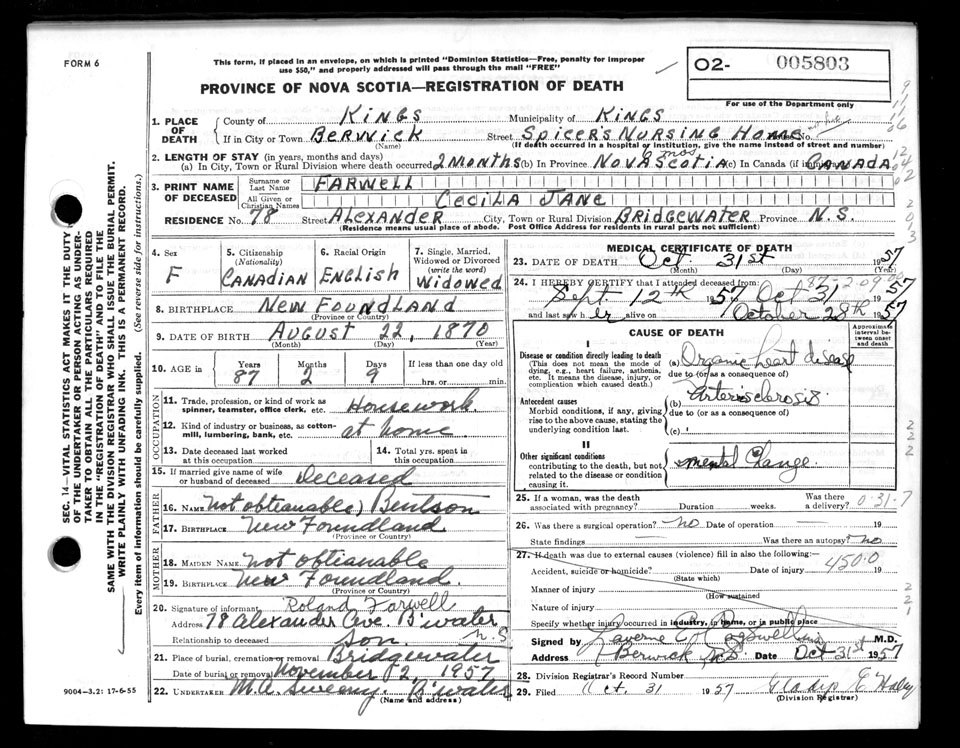 FORM 6
This form, if placed in an envelope, on which is printed "Dominion Statistics—Free, penalty for improper
use $50," and properly addressed will pass through the mail "FREE"
PROVINCE OF NOVA SCOTIA—REGISTRATION OF DEATH
02- 005803
For use of the Department only
1. PLACE OF DEATH
County of KINGS Municipality of KINGS
If in City or Town BERWICK Street SPICER'S NURSING HOME No.
(Name) (If death occurred in a hospital or institution, give the name instead of street and number)
2. LENGTH OF STAY (in years, months and days)
(a) In City, Town or Rural Division where death occurred 2 MONTHS (b) In Province NOVA SCOTIA (c) In Canada (if immigrant) CANADA
3. PRINT NAME OF DECEASED
Surname or Last Name FARWELL
All Given or Christian Names CECILA JANE
RESIDENCE No. 78 Street ALEXANDER City, Town or Rural Division BRIDGEWATER Province N.S.
(Residence means usual place of abode. Post Office Address for residents in rural parts not sufficient)
4. Sex F
5. Citizenship (Nationality) CANADIAN
6. Racial Origin ENGLISH
7. Single, Married, Widowed or Divorced (write the word) WIDOWED
8. BIRTHPLACE NEW FOUNDLAND
(Province or Country)
9. DATE OF BIRTH AUGUST 22, 1870
(Month) (Day) (Year)
10. AGE in Years 87 Months 2 Days 9 If less than one day old hrs. or min.
OCCUPATION
11. Trade, profession, or kind of work as spinner, teamster, office clerk, etc. Housework
12. Kind of industry or business, as cotton-mill, lumbering, bank, etc. at home
13. Date deceased last worked at this occupation
14. Total yrs. spent in this occupation
15. If married give name of wife or husband of deceased Deceased
FATHER
16. NAME (not obtianable) Bentson
17. BIRTHPLACE New Foundland
(Province or Country)
MOTHER
18. MAIDEN NAME not obtianable
19. BIRTHPLACE New Foundland
(Province or Country)
20. Signature of informant Roland Farwell
Address 78 Alexander Ave. B'water N.S
Relationship to deceased Son
21. Place of burial, cremation or removal Bridgewater
Date of burial or removal November 2, 1957
22. UNDERTAKER M.A. Sweeny. B'water
(Name and address)
MEDICAL CERTIFICATE OF DEATH
23. DATE OF DEATH Oct. 31st 1957
(Month) (Day) (Year)
24. I HEREBY CERTIFY that I attended deceased from:
Sept. 12th 1957 to Oct 31 1957
and last saw her alive on October 28th 1957
CAUSE OF DEATH
Approximate interval between onset and death
I
Disease or condition directly leading to death
(This does not mean the mode of dying, e.g., heart failure, asthenia, etc. It means the disease, injury, or complication which caused death.)
(a) Organic heart disease
due to (or as a consequence of)
Antecedent causes
Morbid conditions, if any, giving rise to the above cause, stating the underlying condition last.
(b) Arteriosclerosis.
due to (or as a consequence of)
(c)
II
Other significant conditions
contributing to the death, but not related to the disease or condition causing it.
mental change.
25. If a woman, was the death associated with pregnancy? Duration weeks. Was there a delivery? 0-31-7
26. Was there a surgical operation? no Date of operation 19
State findings Was there an autopsy? no
27. If death was due to external causes (violence) fill in also the following:—
Accident, suicide or homicide? Date of injury 19
(State which)
450.0
Manner of injury
(How sustained
Nature of injury
Specify whether injury occurred in industry, in home, or in public place
Signed by Laverne E. Cogswell M.D.
Address Berwick, N.S. Date Oct 31st 1957
28. Division Registrar's Record Number
29. Filed Oct. 31 1957 Gladys E Haley
(Division Registrar)
SEC. 14—VITAL STATISTICS ACT MAKES IT THE DUTY
OF THE UNDERTAKER OR PERSON ACTING AS UNDER-
TAKER TO OBTAIN ALL THE PARTICULARS REQUIRED
IN THE "REGISTRATION OF DEATH" AND TO FILE THE
SAME WITH THE DIVISION REGISTRAR WHO SHALL ISSUE THE BURIAL PERMIT.
WRITE PLAINLY WITH UNFADING INK. THIS IS A PERMANENT RECORD.
Every item of information should be carefully supplied. (See reverse side for instructions.)
9004-3.2: 17-6-55